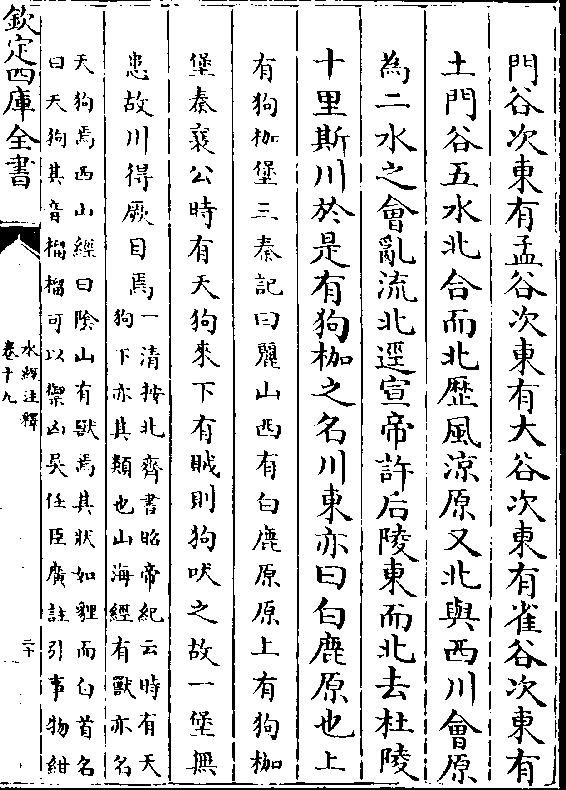 門谷次東有孟谷次東有大谷次東有雀谷次東有
土門谷五水北合而北歴風涼原又北與西川會原
為二水之會亂流北逕宣帝許后陵東而北去杜陵
十里斯川於是有狗枷之名川東亦曰白鹿原也上
有狗枷堡三秦記曰麗山西有白鹿原原上有狗枷
堡秦襄公時有天狗來下有賊則狗吠之故一堡無
患故川得厥目焉
一清按北齊書昭帝紀云時有天
狗下亦其類也山海經有獸亦名
天狗焉西山經曰隂山有獸焉其狀如貍而白首名
曰天狗其音榴榴可以禦凶吳任臣廣註引事物紺
欽定四庫全書
水經注釋
卷十九
二十